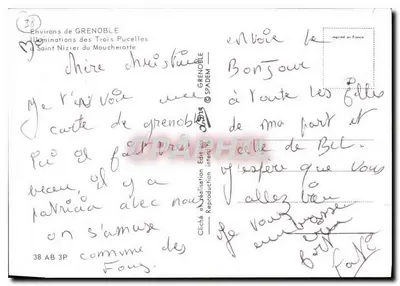 38
Environs de GRENOBLE
Illuminations des Trois Pucelles
à Saint Nizier du Moucherotte
chère christine
Je t'envoie une
carte de grenoble
ici il fait très
beau, il y a
patricia avec nous
on s'amuse
comme des
fous
38 AB 3P
GRENOBLE
© SPADEM
Cliché et réalisation
Reproduction
imprimé en France
envoie le
Bonjour
à toute les filles
de ma part et
celle de
J'espère que vous
allez bien
Je vous
embrasse
bien
fort